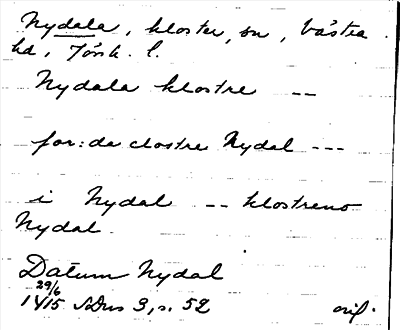 Nydala, kloster, sn, Västra
hd, Jönk. l.
Nydala klostre --
for:da clostre Nydal ---
i Nydal -- klostreno
Nydal.
Datum Nydal
29/6
1415 SDns 3, s. 52 orig.